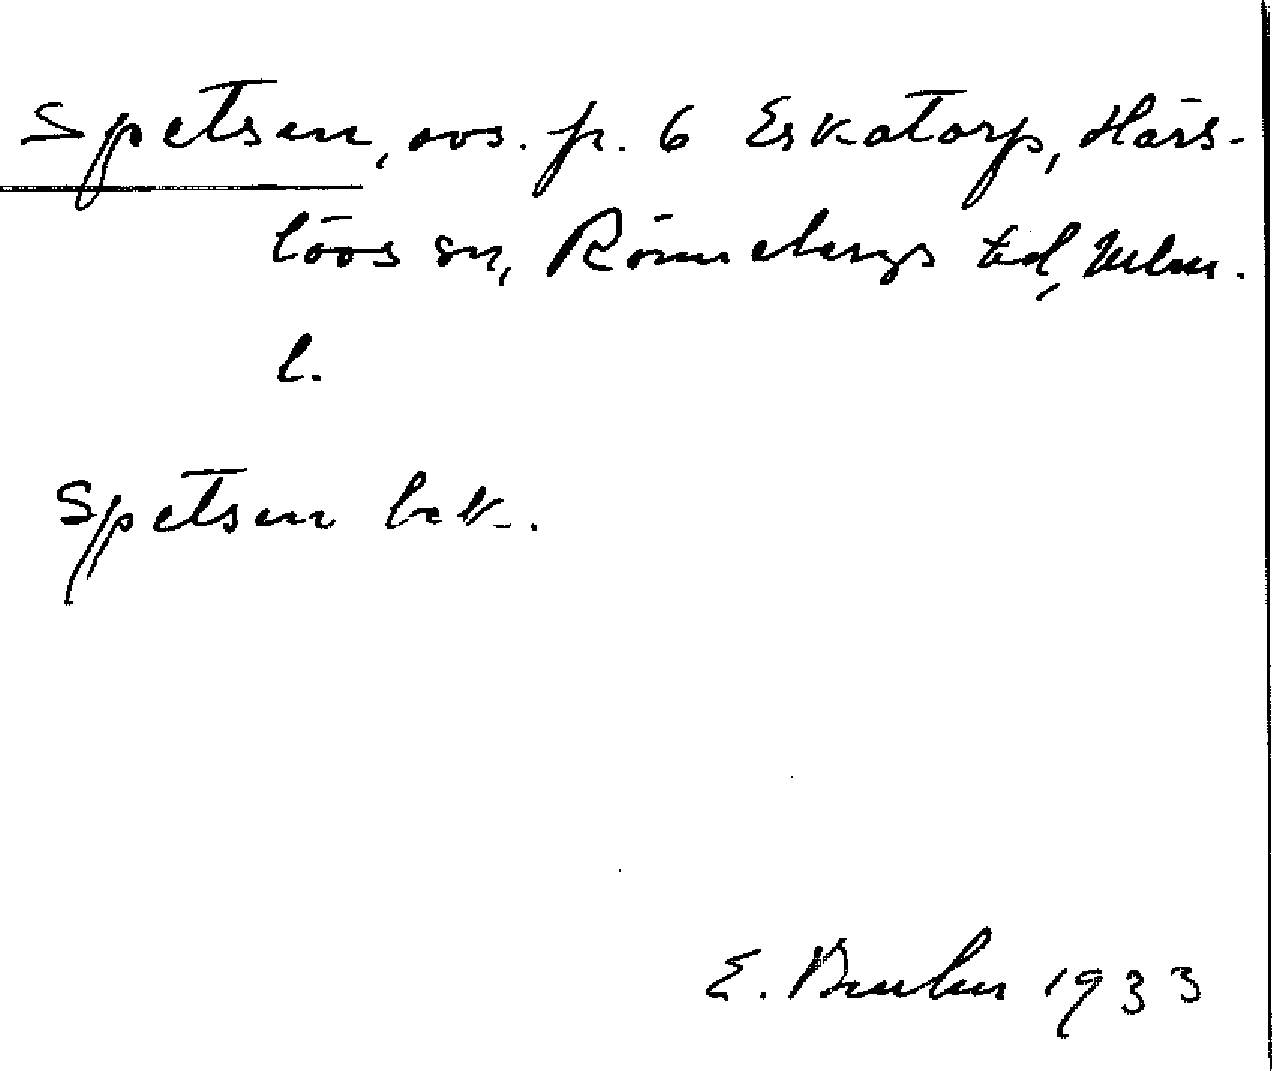 Spetsen, avs. fr. 6 Eskatorp, Härs-
lövs sn, Rönnebergs hd, Mlm.
l.
Spetsen bek.
E. 1933